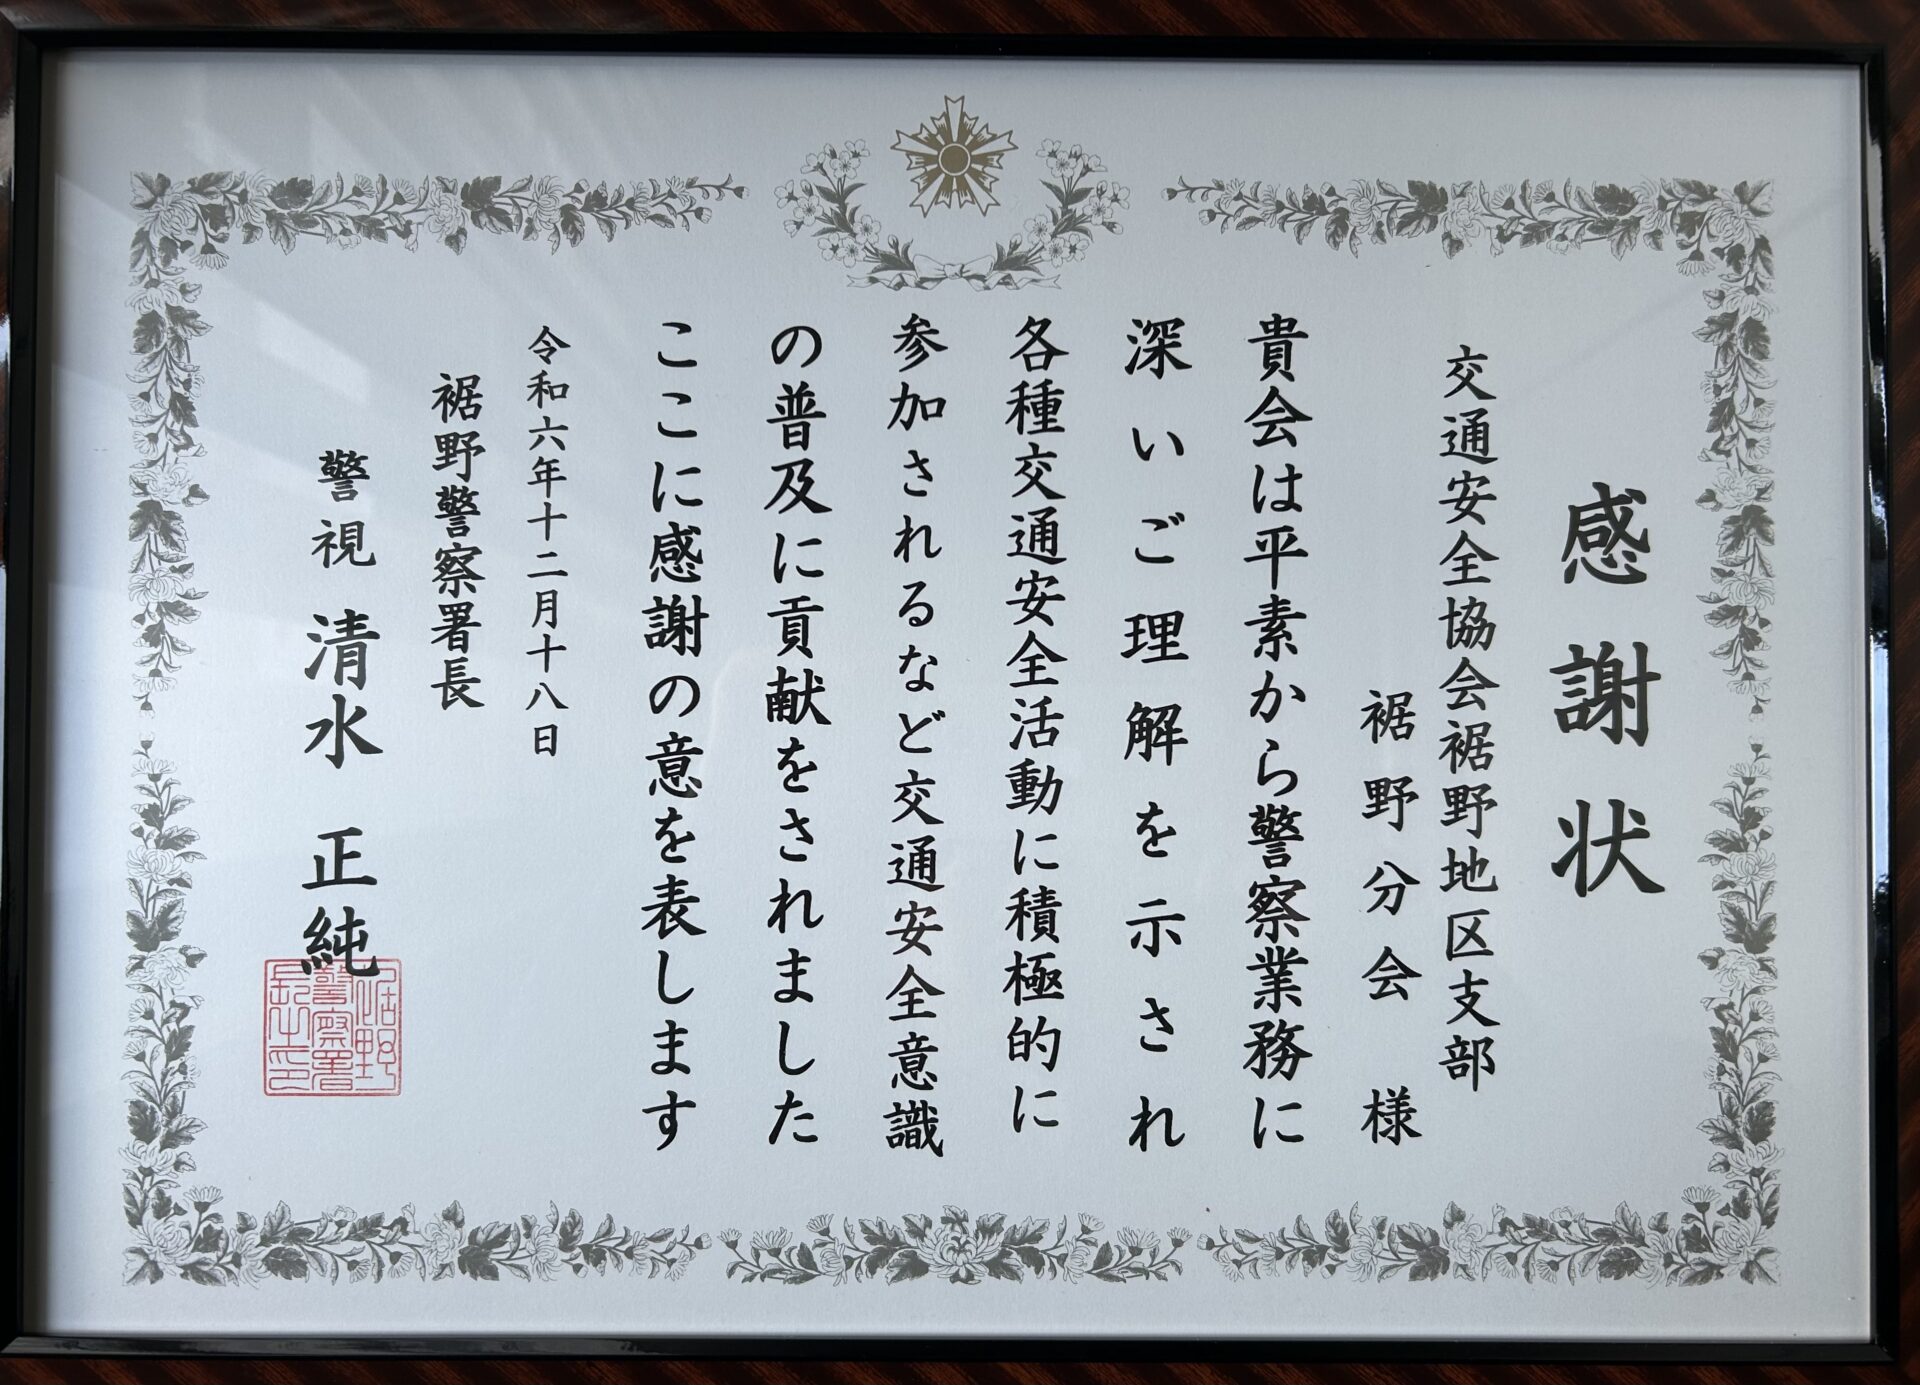 感謝状
交通安全協会裾野地区支部
裾野分会 様
貴会は平素から警察業務に
深いご理解を示され
各種交通安全活動に積極的に
参加されるなど交通安全意識
の普及に貢献をされました
ここに感謝の意を表します
令和六年十二月十八日
裾野警察署長
警視 清水 正純
裾野
警察署
長之印